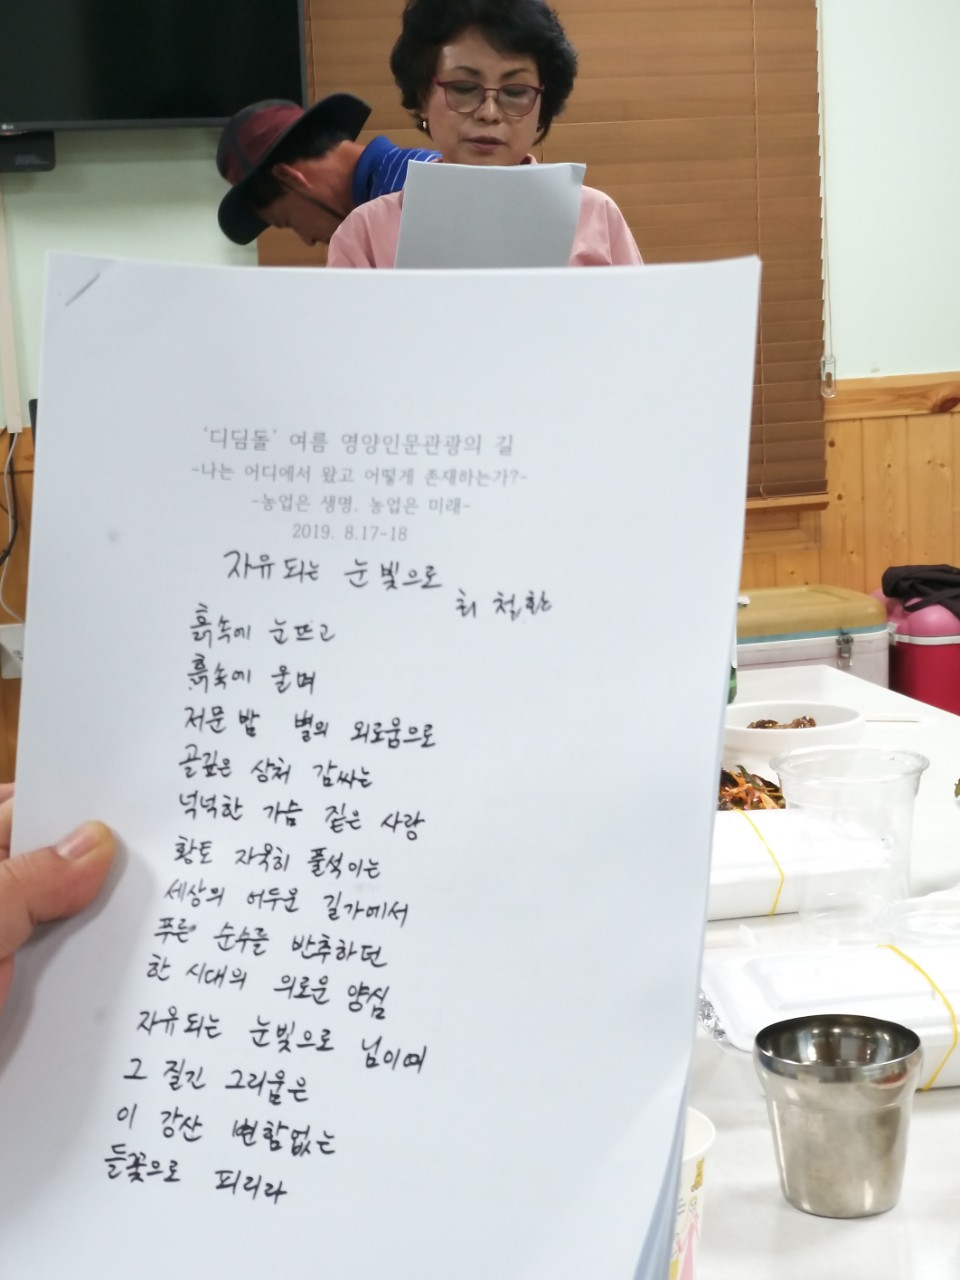 LG
'디딤돌' 여름 영양인문관광의 길
-나는 어디에서 왔고 어떻게 존재하는가?-
-농업은 생명, 농업은 미래-
2019. 8.17-18
자유 되는 눈빛으로
최철환
흙속에 눈뜨고
흙속에 울며
저문 밤 별의 외로움으로
골깊은 상처 감싸는
넉넉한 가슴 짙은 사랑
황토 자욱히 풀석이는
세상의 어두운 길가에서
푸른 순수를 반추하던
한 시대의 의로운 양심
자유되는 눈빛으로 님이여
그 질긴 그리움은
이 강산 변함없는
들꽃으로 피리라